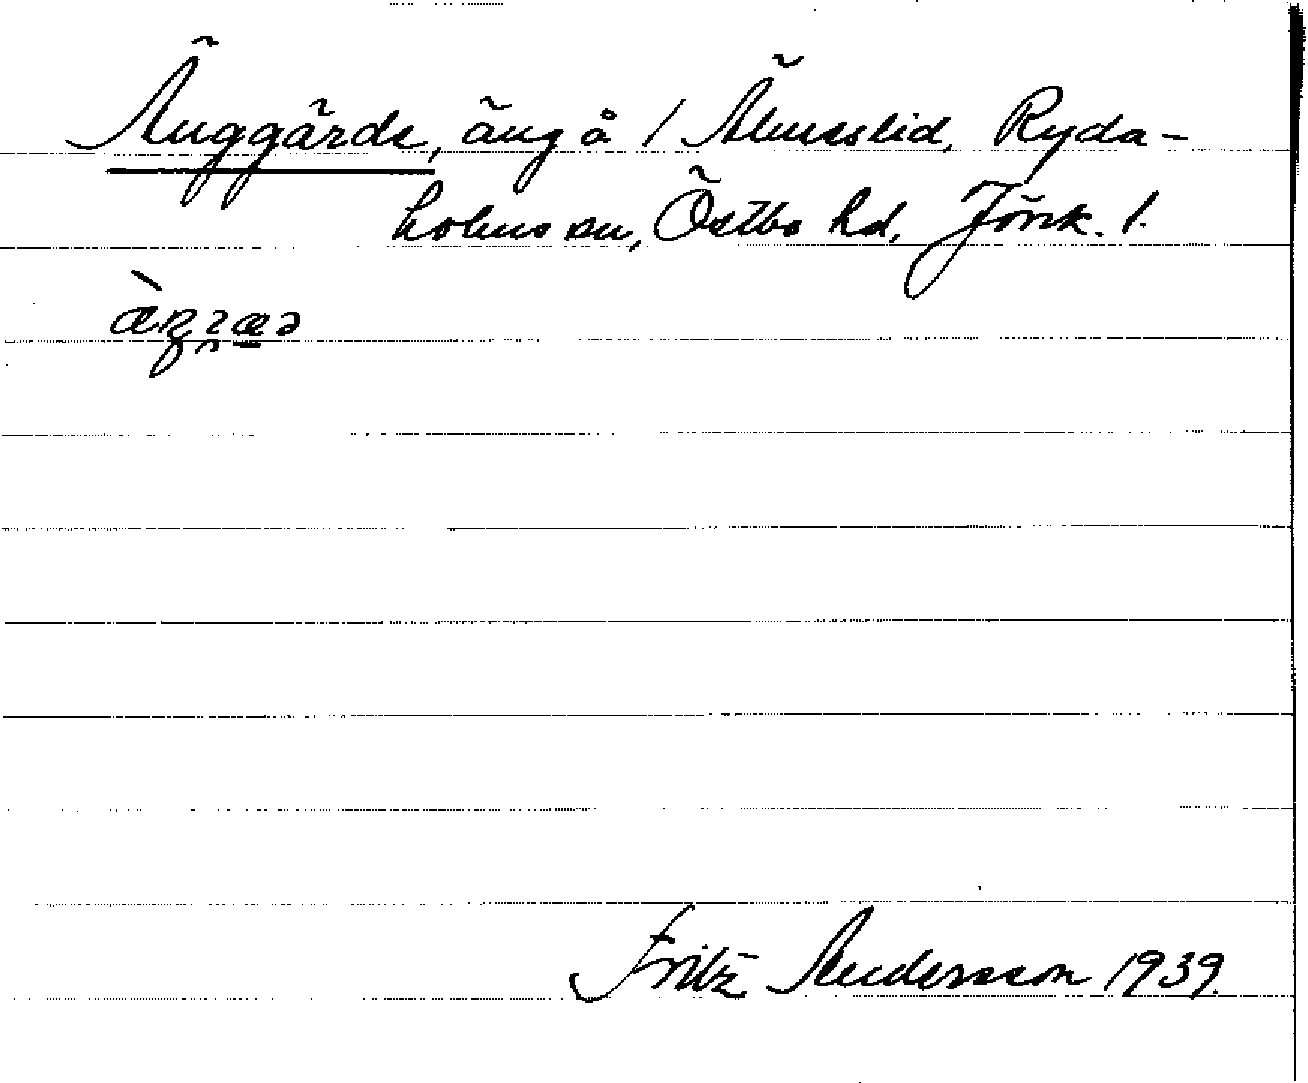 Änggärde, äng å 1 Älmeslid, Ryda-
holms sn, Östbo hd, Jönk. l.
Fritz Andersson 1939.